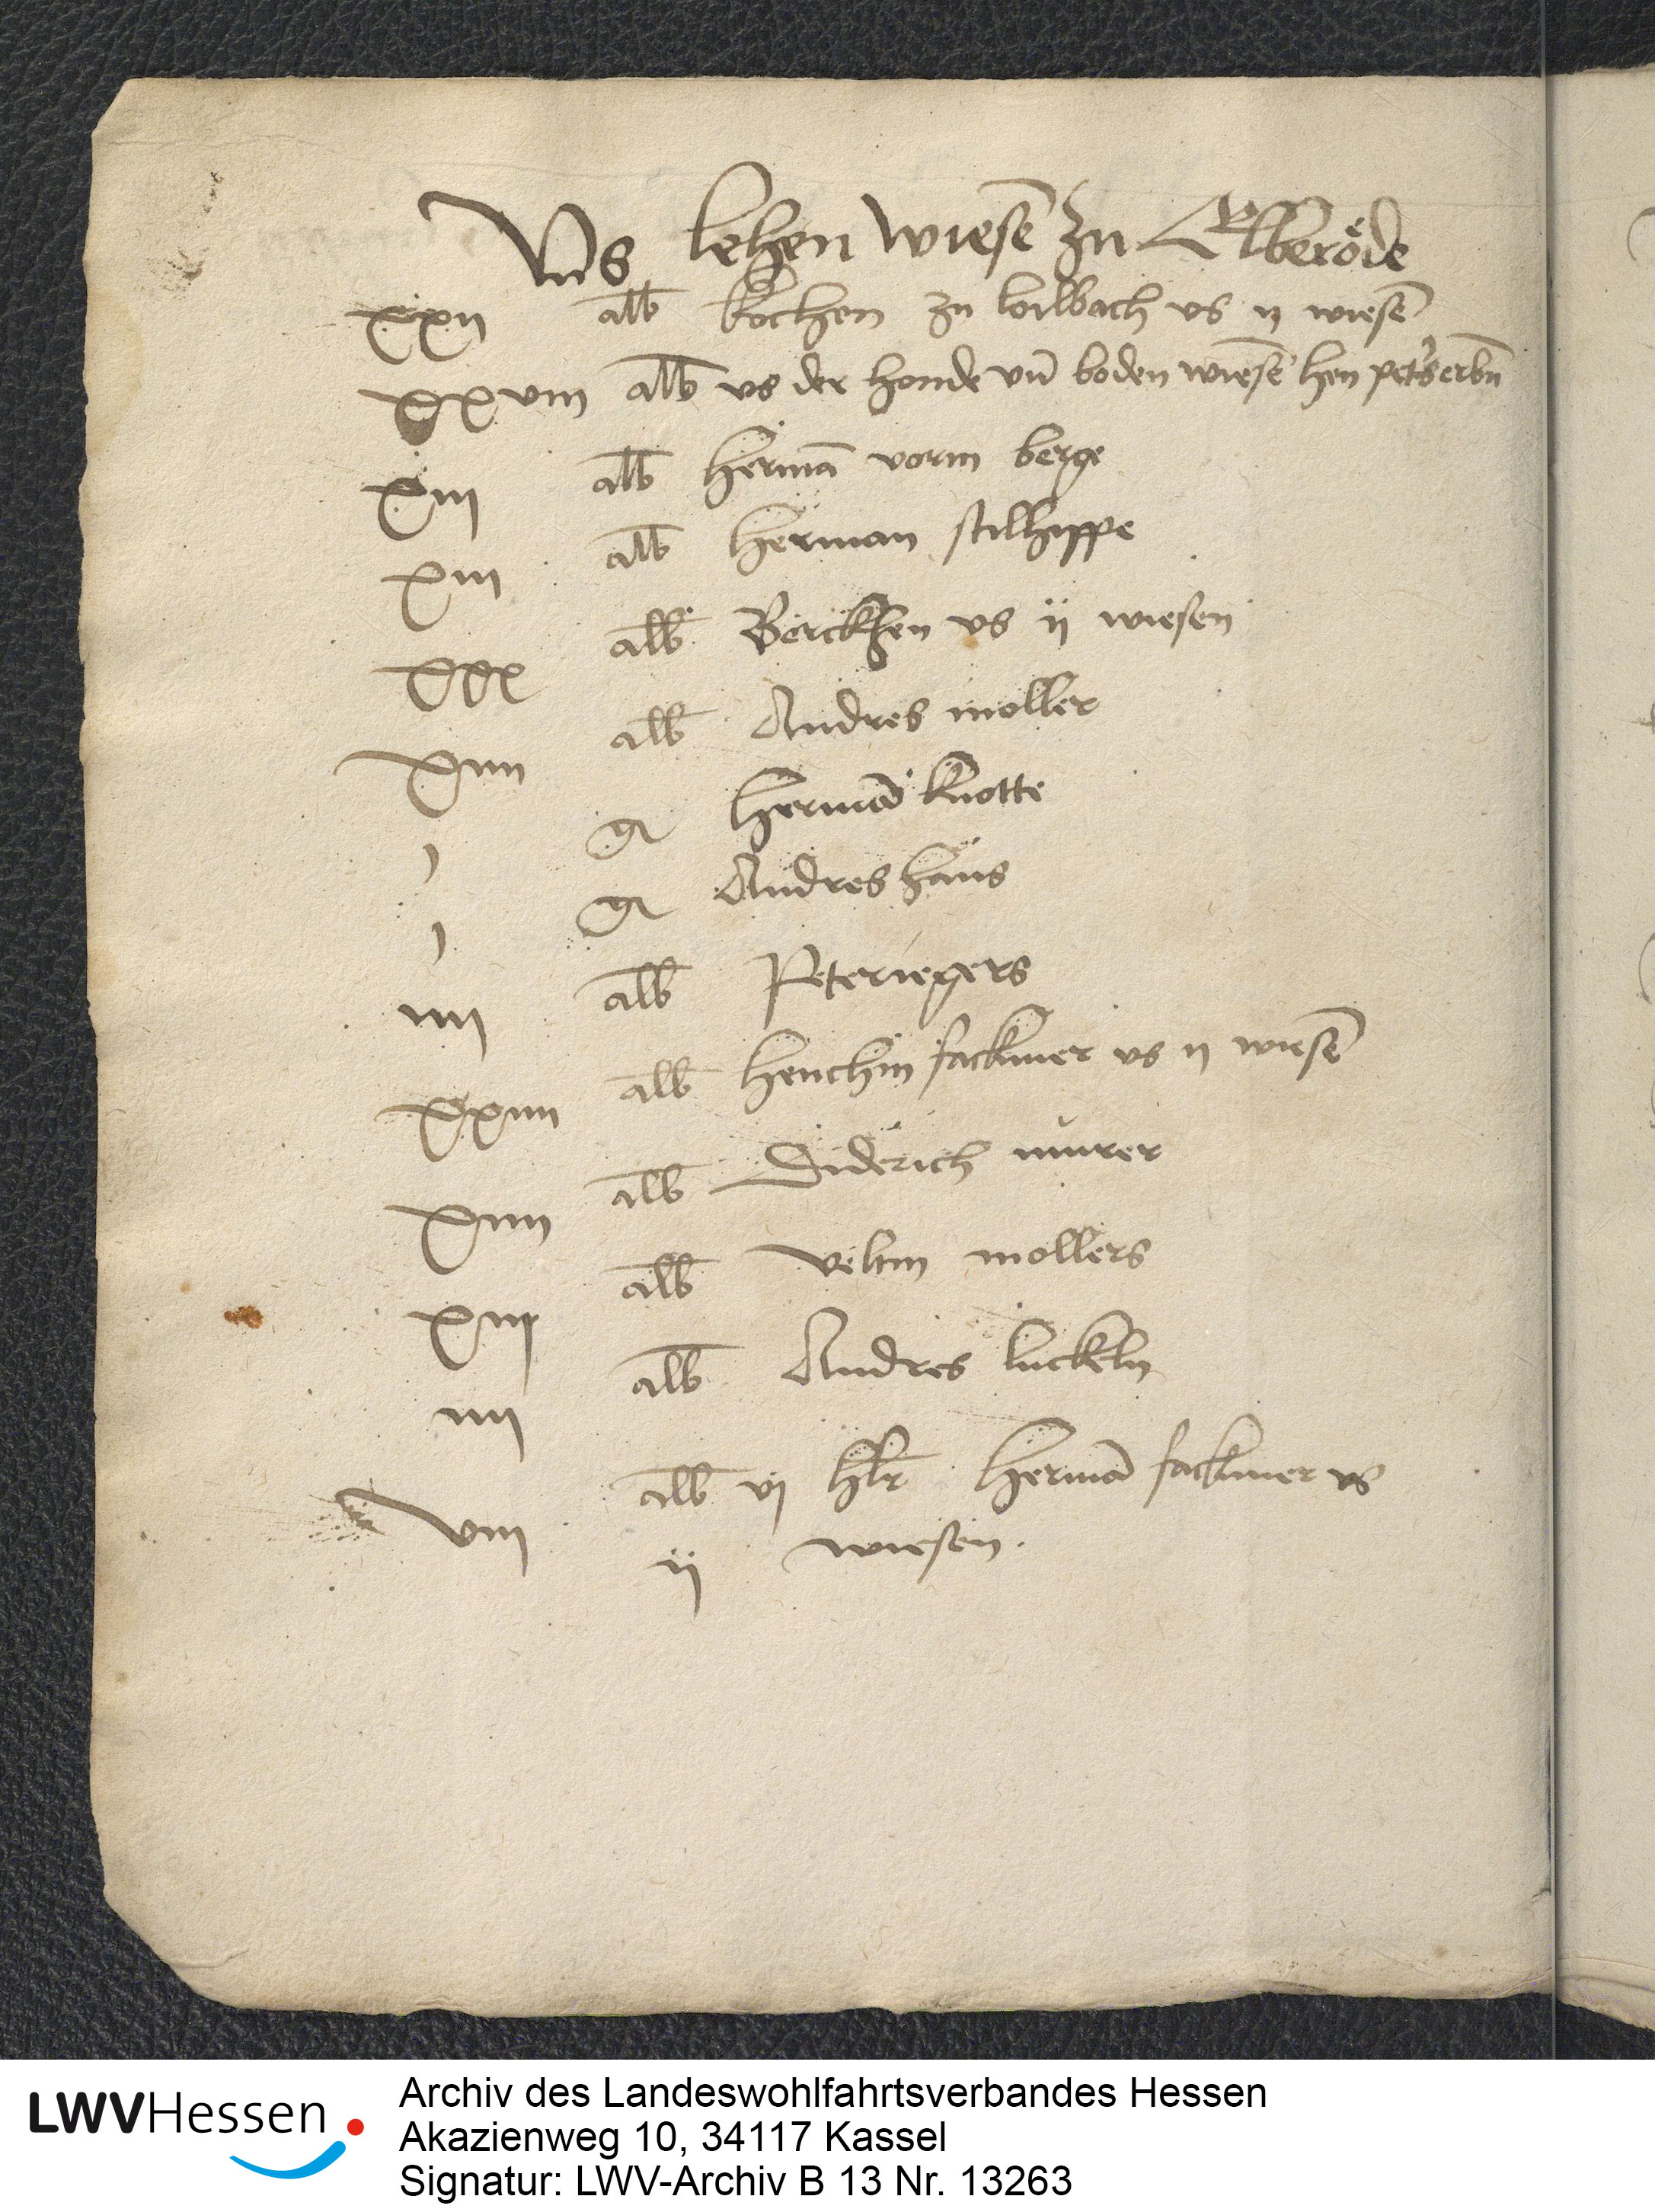 Vns lehen wiesē zu Elberöde
xxij alb kochen zu loilbach vs ij wiesē
xxviij alb vs der honde vñ boden wiesē hen pet's erbñ
xiij alb hermā vorm berge
xiij alb herman stilhippe
xxx alb Berckhen vs ij wiesen
xiiij alb Andres moller
j gr hermā knotte
j gr Andres hans
iiij alb Peteriegers
xxiiij alb henchin fackiner vs ij wiesē
xiiij alb Diderich murer
xiij alb veltin mollers
iiij alb Andres luckeln
viij alb vj hlr hermā fackiner vs
ij wiesen
LWVHessen
Archiv des Landeswohlfahrtsverbandes Hessen
Akazienweg 10, 34117 Kassel
Signatur: LWV-Archiv B 13 Nr. 13263